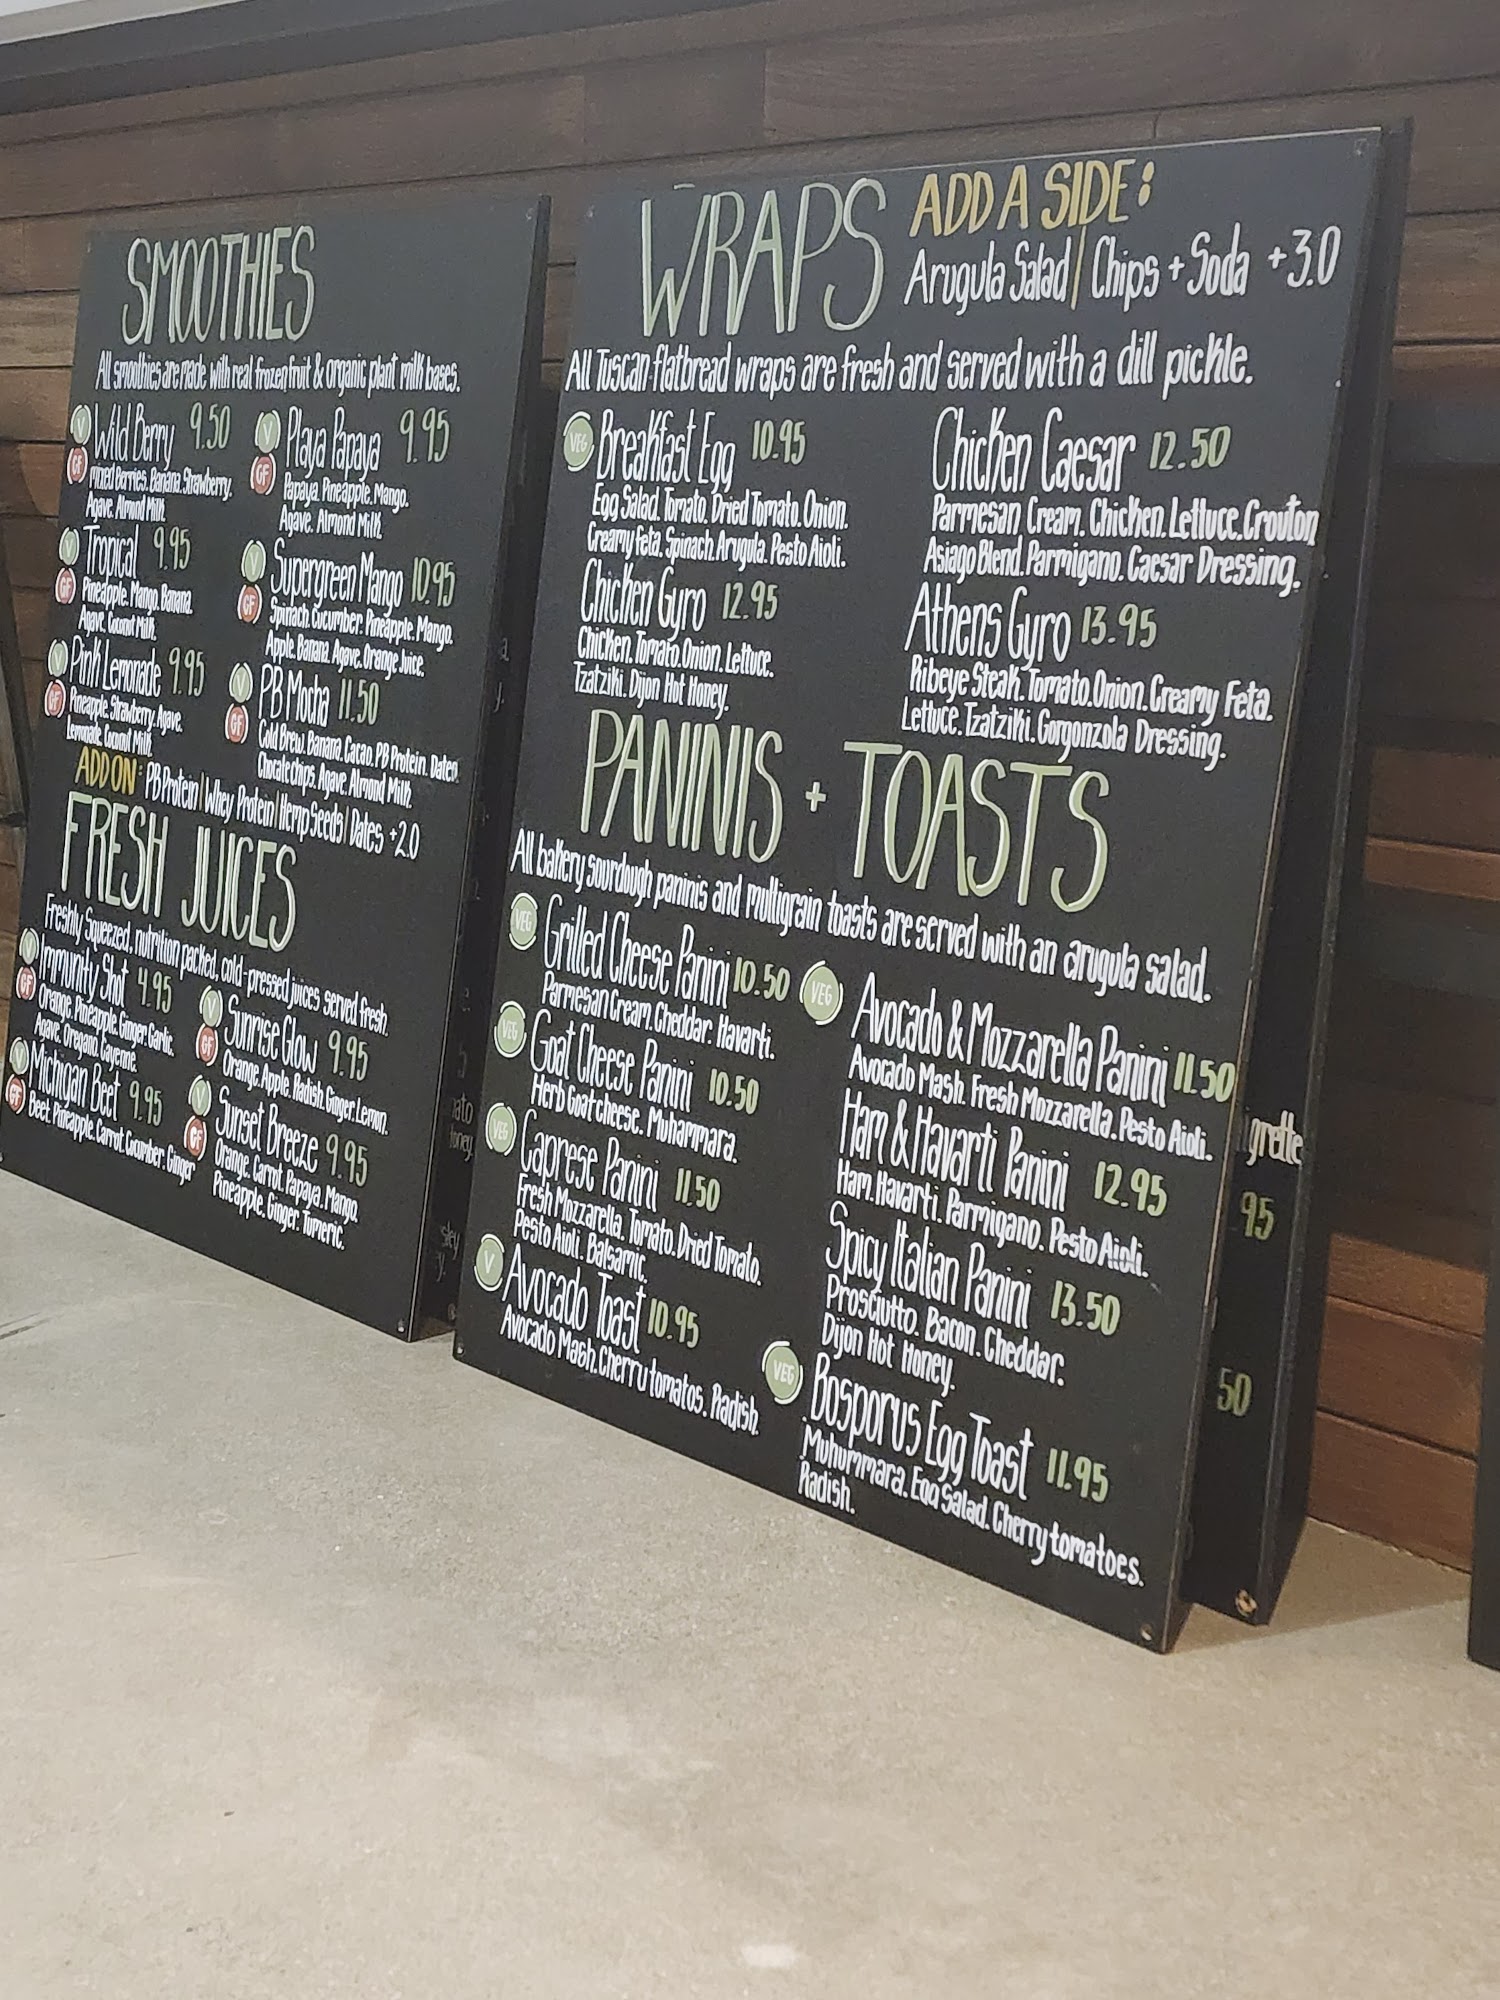 SMOOTHIES
All smoothies are made with real frozen fruit & organic plant milk bases.
V GF Wild Berry 9.50
Mixed Berries. Banana. Strawberry.
Agave. Almond Milk
V GF Tropical 9.95
Pineapple. Mango. Banana.
Agave. Coconut Milk.
V GF Pink Lemonade 9.95
Pineapple. Strawberry. Agave.
Lemonade. Coconut Milk
V GF Playa Papaya 9.95
Papaya. Pineapple. Mango.
Agave. Almond Milk.
V GF Supergreen Mango 10.95
Spinach. Cucumber. Pineapple. Mango.
Apple. Banana. Agave. Orange Juice.
V GF PB Mocha 11.50
Cold Brew. Banana. Cacao. PB Protein. Dates.
Chocate chips. Agave. Almond Milk.
ADD ON: PB Protein | Whey Protein | Hemp Seeds | Dates +2.0
FRESH JUICES
Freshly Squeezed, nutrition packed, cold-pressed juices served fresh.
V GF Immunity Shot 4.95
Orange. Pineapple. Ginger. Garlic.
Agave. Oregano. Cayenne.
V GF Michigan Beet 9.95
Beet. Pineapple. Carrot. Cucumber. Ginger
V GF Sunrise Glow 9.95
Orange. Apple. Radish. Ginger. Lemon.
V GF Sunset Breeze 9.95
Orange. Carrot. Papaya. Mango.
Pineapple. Ginger. Tumeric.
WRAPS
ADD A SIDE:
Arugula Salad | Chips + Soda +3.0
All Tuscan flatbread wraps are fresh and served with a dill pickle.
VEG Breakfast Egg 10.95
Egg Salad. Tomato. Dried Tomato. Onion.
Creamy Feta. Spinach. Arugula. Pesto Aioli.
Chicken Gyro 12.95
Chicken. Tomato. Onion. Lettuce.
Tzatziki. Dijon Hot Honey.
Chicken Caesar 12.50
Parmesan Cream. Chicken. Lettuce. Crouton
Asiago Blend. Parmigano. Caesar Dressing.
Athens Gyro 13.95
Ribeye Steak. Tomato. Onion. Creamy Feta.
Lettuce. Tzatziki. Gorgonzola Dressing.
PANINIS + TOASTS
All bakery sourdough paninis and multigrain toasts are served with an arugula salad.
VEG Grilled Cheese Panini 10.50
Parmesan Cream. Cheddar. Havarti.
VEG Goat Cheese Panini 10.50
Herb Goat cheese. Muhammara.
VEG Caprese Panini 11.50
Fresh Mozzarella. Tomato. Dried Tomato.
Pesto Aioli. Balsamic.
V Avocado Toast 10.95
Avocado Mash. Cherry tomatos. Radish.
VEG Avocado & Mozzarella Panini 11.50
Avocado Mash. Fresh Mozzarella. Pesto Aioli.
Ham & Havarti Panini 12.95
Ham. Havarti. Parmigano. Pesto Aioli.
Spicy Italian Panini 13.50
Prosciutto. Bacon. Cheddar.
Dijon Hot Honey.
VEG Bosporus Egg Toast 11.95
Muhummara. Egg Salad. Cherry tomatoes.
Radish.
95
50